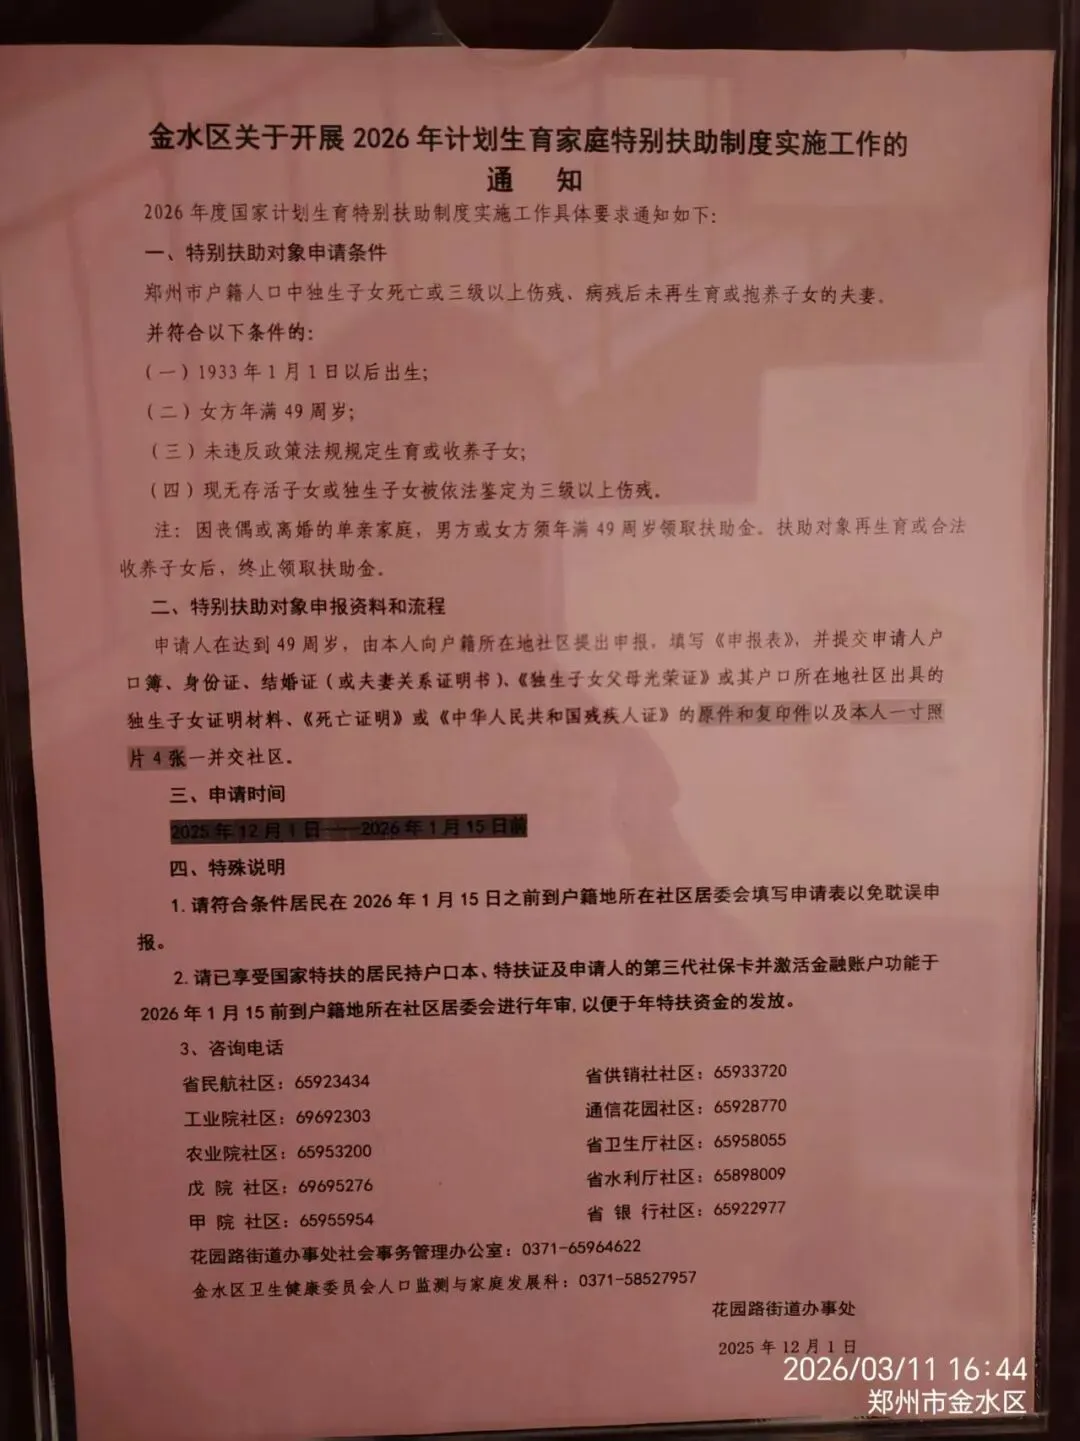 金水区关于开展 2026 年计划生育家庭特别扶助制度实施工作的
通 知
2026 年度国家计划生育特别扶助制度实施工作具体要求通知如下：
一、特别扶助对象申请条件
郑州市户籍人口中独生子女死亡或三级以上伤残、病残后未再生育或抱养子女的夫妻。
并符合以下条件的：
（一）1933 年 1 月 1 日以后出生；
（二）女方年满 49 周岁；
（三）未违反政策法规规定生育或收养子女；
（四）现无存活子女或独生子女被依法鉴定为三级以上伤残。
注：因丧偶或离婚的单亲家庭，男方或女方须年满 49 周岁领取扶助金。扶助对象再生育或合法
收养子女后，终止领取扶助金。
二、特别扶助对象申报资料和流程
申请人在达到 49 周岁，由本人向户籍所在地社区提出申报，填写《申报表》，并提交申请人户
口簿、身份证、结婚证（或夫妻关系证明书）、《独生子女父母光荣证》或其户口所在地社区出具的
独生子女证明材料、《死亡证明》或《中华人民共和国残疾人证》的原件和复印件以及本人一寸照
片 4 张一并交社区。
三、申请时间
2025 年 12 月 1 日——2026 年 1 月 15 日前
四、特殊说明
1.请符合条件居民在 2026 年 1 月 15 日之前到户籍地所在社区居委会填写申请表以免耽误申
报。
2.请已享受国家特扶的居民持户口本、特扶证及申请人的第三代社保卡并激活金融账户功能于
2026 年 1 月 15 前到户籍地所在社区居委会进行年审,以便于年特扶资金的发放。
3、咨询电话
省民航社区：65923434 省供销社社区：65933720
工业院社区：69692303 通信花园社区：65928770
农业院社区：65953200 省卫生厅社区：65958055
戊 院 社区：69695276 省水利厅社区：65898009
甲 院 社区：65955954 省 银 行社区：65922977
花园路街道办事处社会事务管理办公室：0371-65964622
金水区卫生健康委员会人口监测与家庭发展科：0371-58527957
花园路街道办事处
2025 年 12 月 1 日
2026/03/11 16:44
郑州市金水区